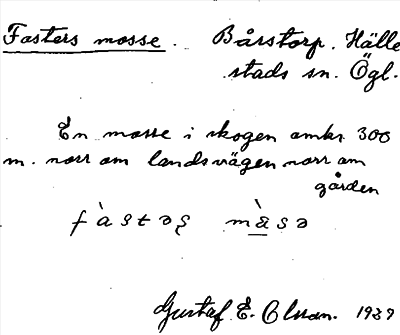 Fasters mosse. Bårstorp. Hälle
stads sn. Ögl.
En mosse i skogen omkr. 300
m. norr om landsvägen norr om
gården
Gustaf E. Olsson. 1939